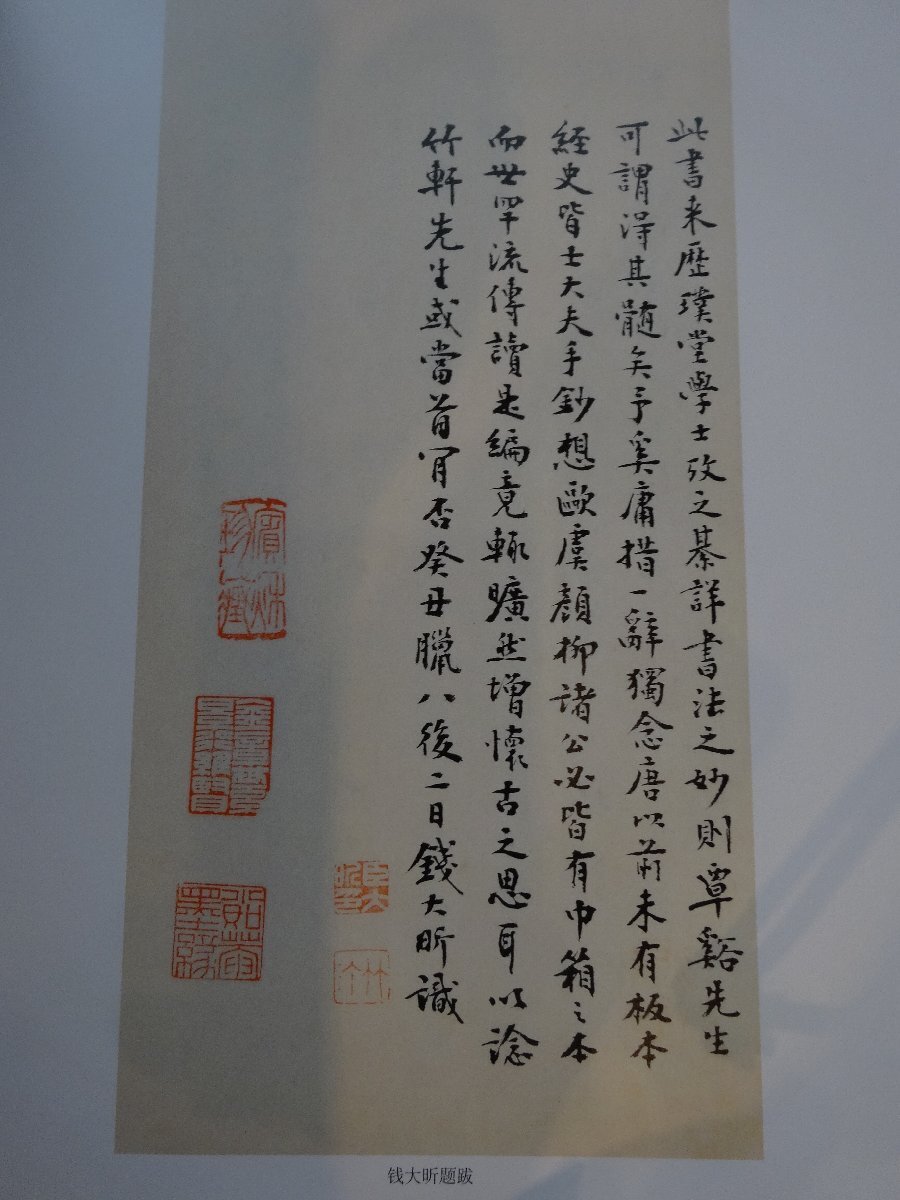 此書来歷璞堂學士攷之綦詳書法之妙則覃谿先生
可謂淂其髄矣予奚庸措一辭獨念唐以前未有板本
經史皆士大夫手鈔想歐虞顔柳諸公必皆有巾箱之本
而世罕流傳讀是編竟輒曠然增懷古之思耳以諗
竹軒先生或當首肎否癸丑臘八後二日錢大昕識
臣大昕
竹汀
钱大昕题跋